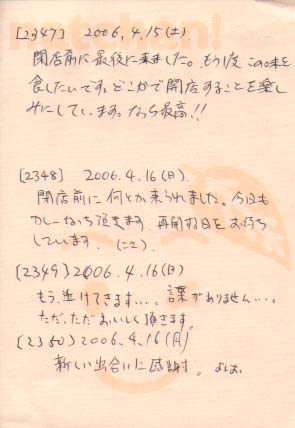 [2347] 2006.4.15(土)
閉店前に最後に来ました。もう1度この味を
食したいです。どこかで開店することを楽し
みにしています。なっち最高!!
[2348] 2006.4.16(日)
閉店前に何とか来られました。今日も
カレーなっち頂きます。再開する日をお待ち
しています。(こさ)
[2349] 2006.4.16(日)
もう、泣けてきます…。言葉がありません…。
ただ、ただおいしく頂きます。
[2350] 2006.4.16(月)
新しい出合いに感謝。